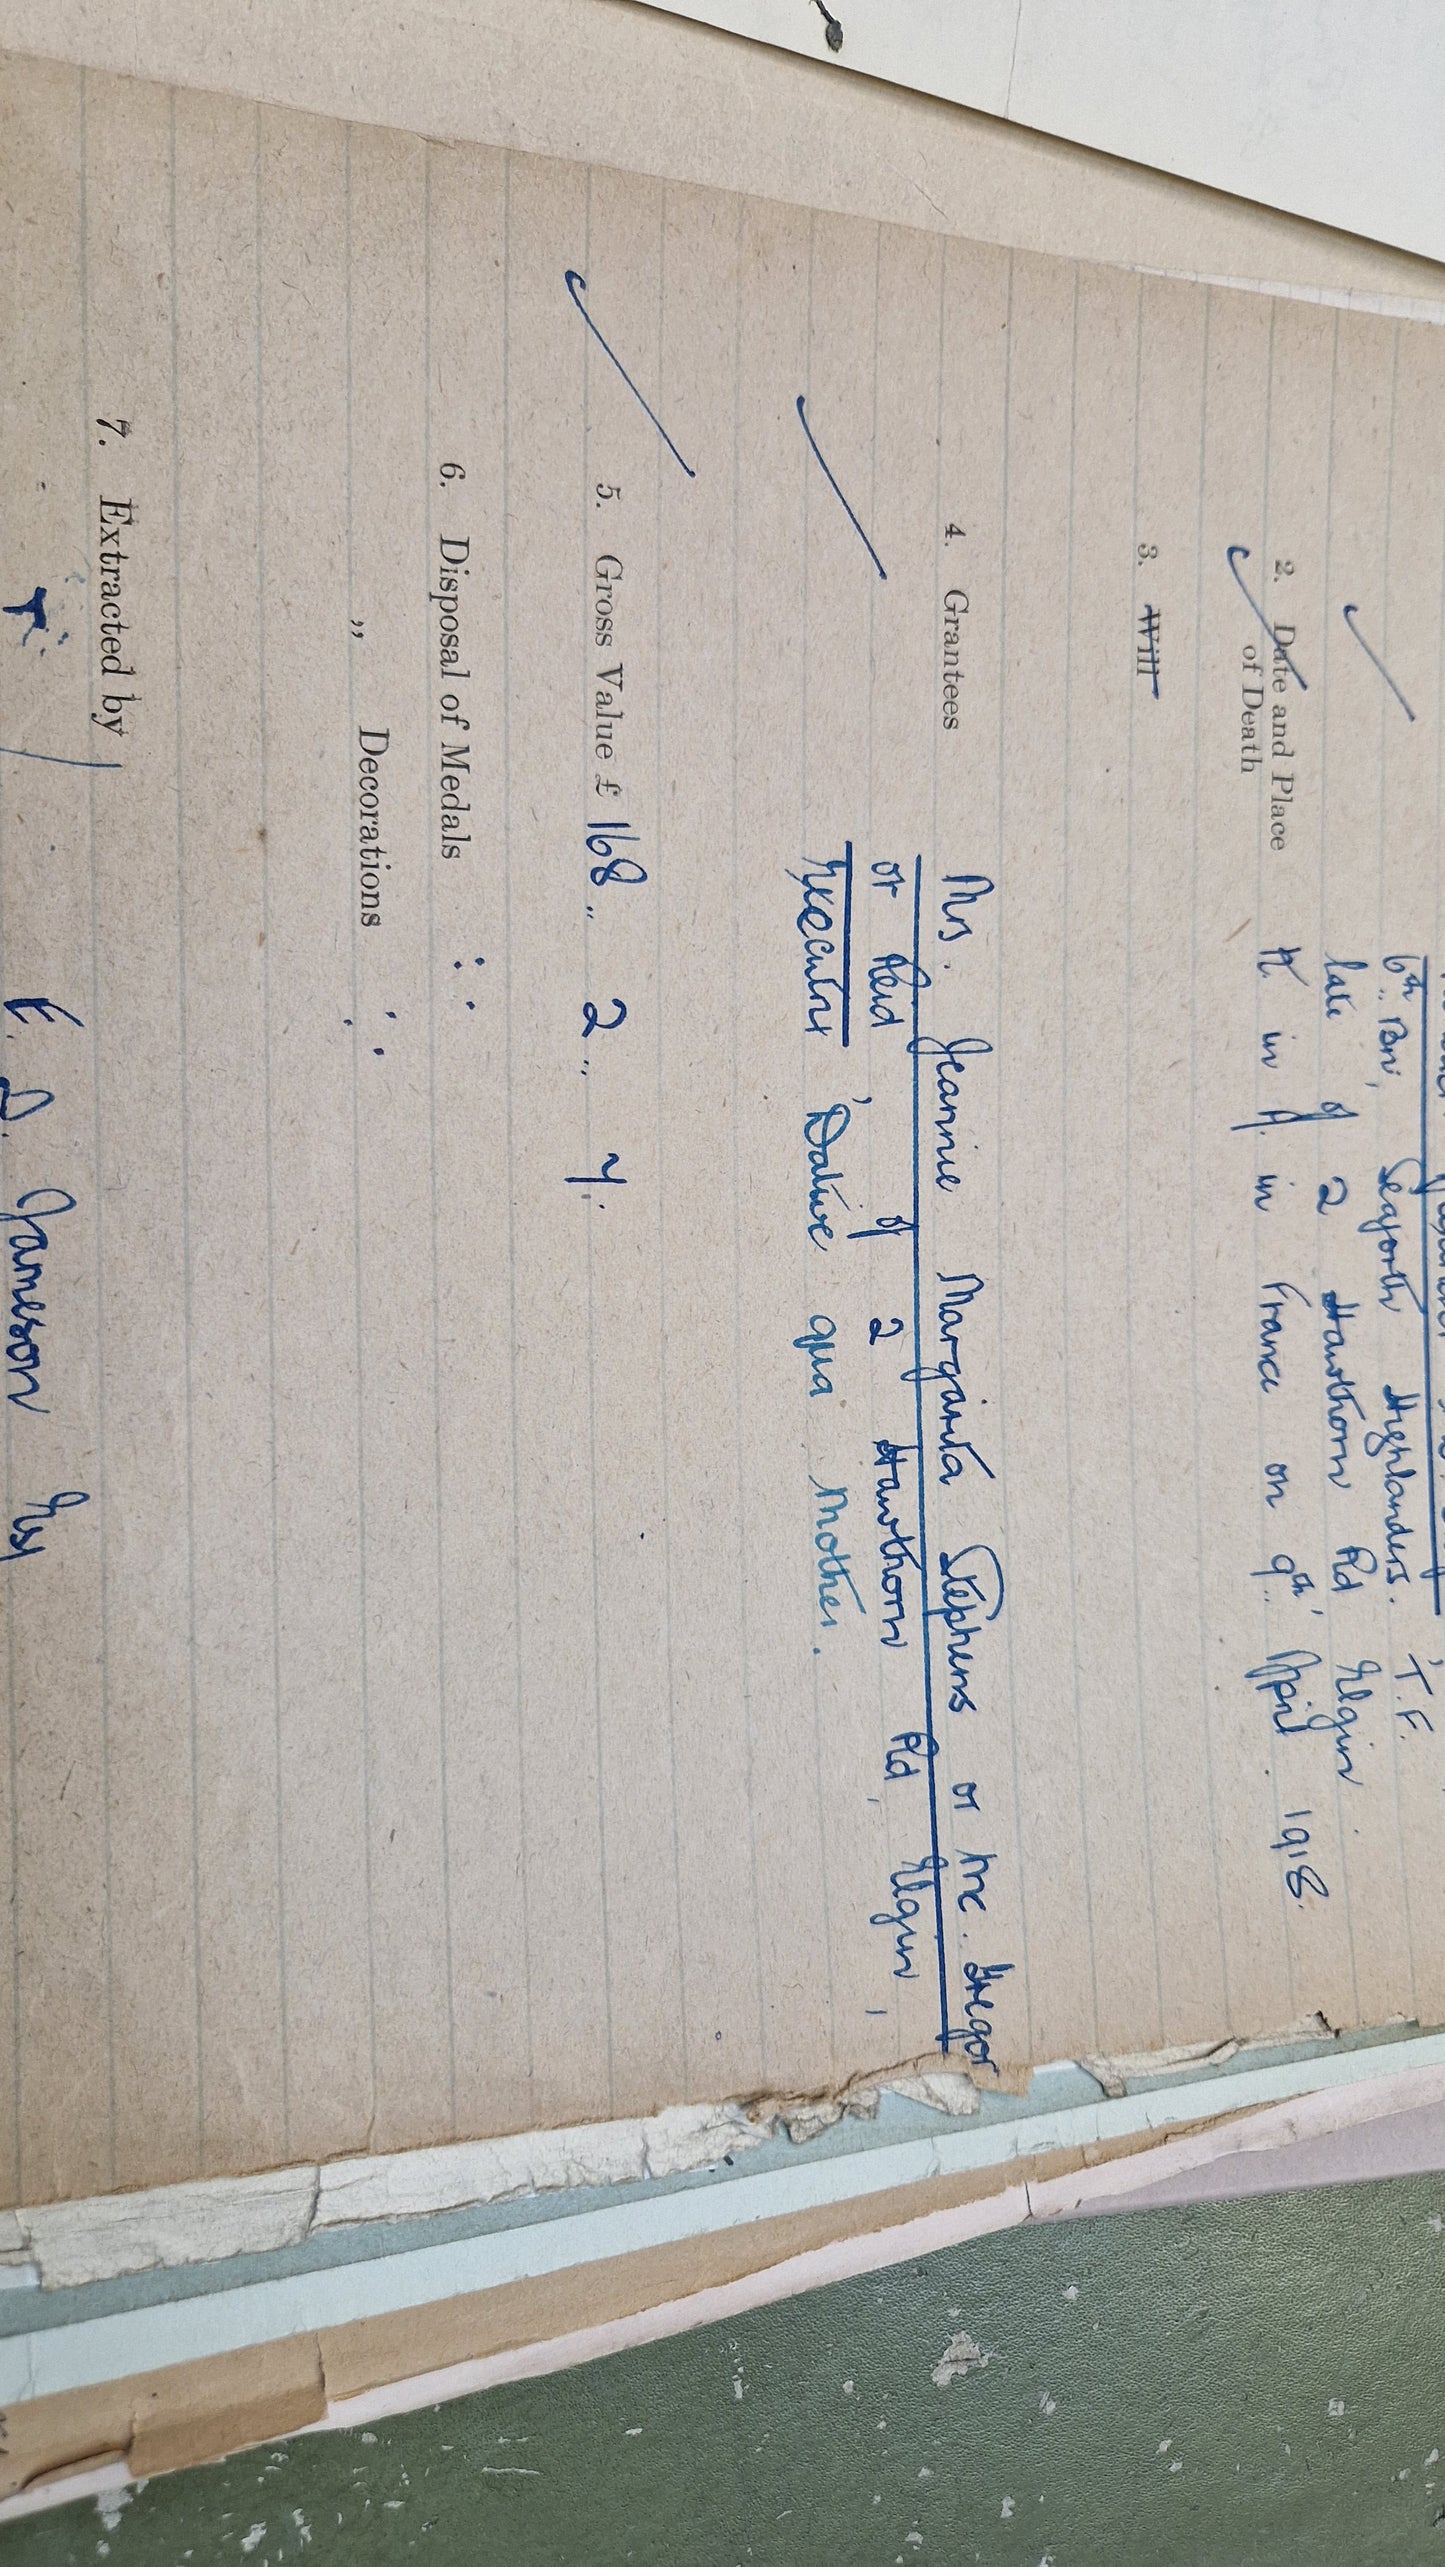 6th Bn, Seaforth Highlanders. T.F.
late of 2 Hawthorn Rd Elgin.
2. Date and Place of Death
K. in A. in France on 9th, April. 1918.
3. Will
4. Grantees Mrs. Jeannie Margarita Stephens or Mc. Gregor
or Reid, of 2 Hawthorn Rd, Elgin,
Executrix Dative qua Mother.
5. Gross Value £ 168 .. 2 .. 7.
6. Disposal of Medals
„ Decorations
7. Extracted by
E. D. Jameson